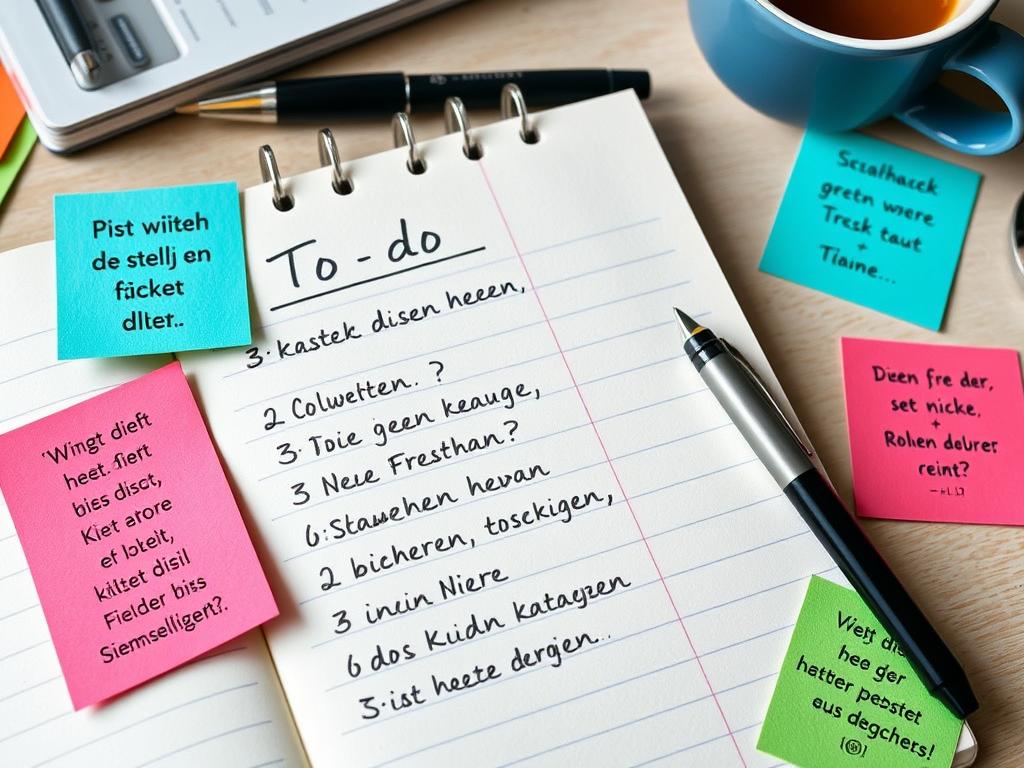 Pist wiiteh
de stellj en
ficket
dlter..
To-do
3. kastek disen heeen,
2 Colwetten. ?
3. Toie geen keauge,
3 Neue Fresthan?
6: Stawehen hevan
2 bicheren, tosckigen,
3 inein Niere
6 dos Kuidn katagzen
3. ist heete dergen..
Wingt dieft
heet. fiert
bies disct,
Kiet arore
ef loket,
kiltet disil
Fielder biss
Siemselligert?.
Scsalhacek
gretn were
Tresk taut
+
Tlaine...
Dieen fre der,
set nicke,
+
Rohen delurer
reint?
Wejt dis
hee ger
hatter pestet
eus degchets!